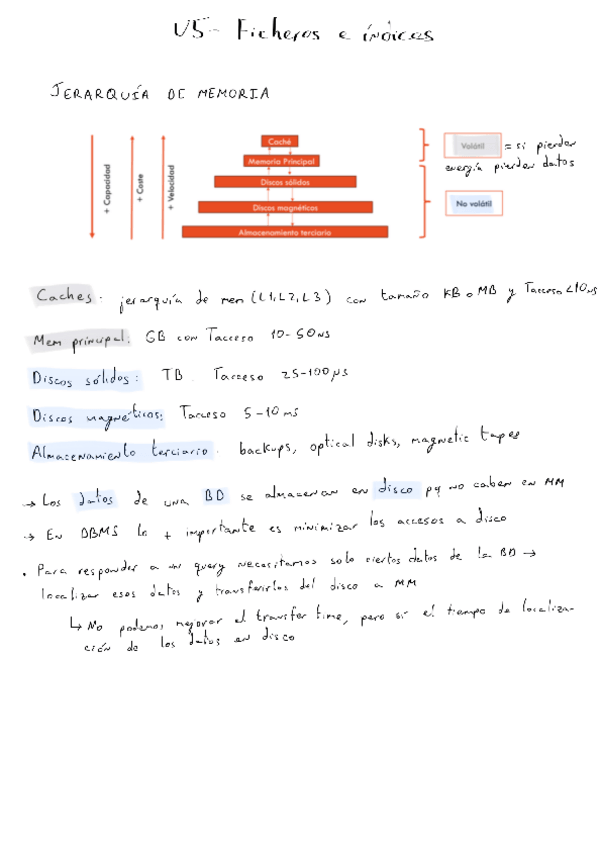 U5- Ficheros e índices
JERARQUÍA DE MEMORIA
+ Capacidad
+ Coste
+ Velocidad
Caché
Memoria Principal
Discos sólidos
Discos magnéticos
Almacenamiento terciario
Volátil = si pierden
energía pierden datos
No volátil
Caches: jerarquía de mem (L1, L2, L3) con tamaño KB o MB y Tacceso <10ns
Mem principal: GB con Tacceso 10-50ns
Discos sólidos: TB. Tacceso 25-100 µs
Discos magnéticos: Tacceso 5-10 ms
Almacenamiento terciario: backups, optical disks, magnetic tapes
→ Los datos de una BD se almacenan en disco pq no caben en MM
→ En DBMS lo + importante es minimizar los accesos a disco
• Para responder a una query necesitamos solo ciertos datos de la BD →
localizar esos datos y transferirlos del disco a MM
↳ No podemos mejorar el transfer time, pero sí el tiempo de localiza-
ción de los datos en disco